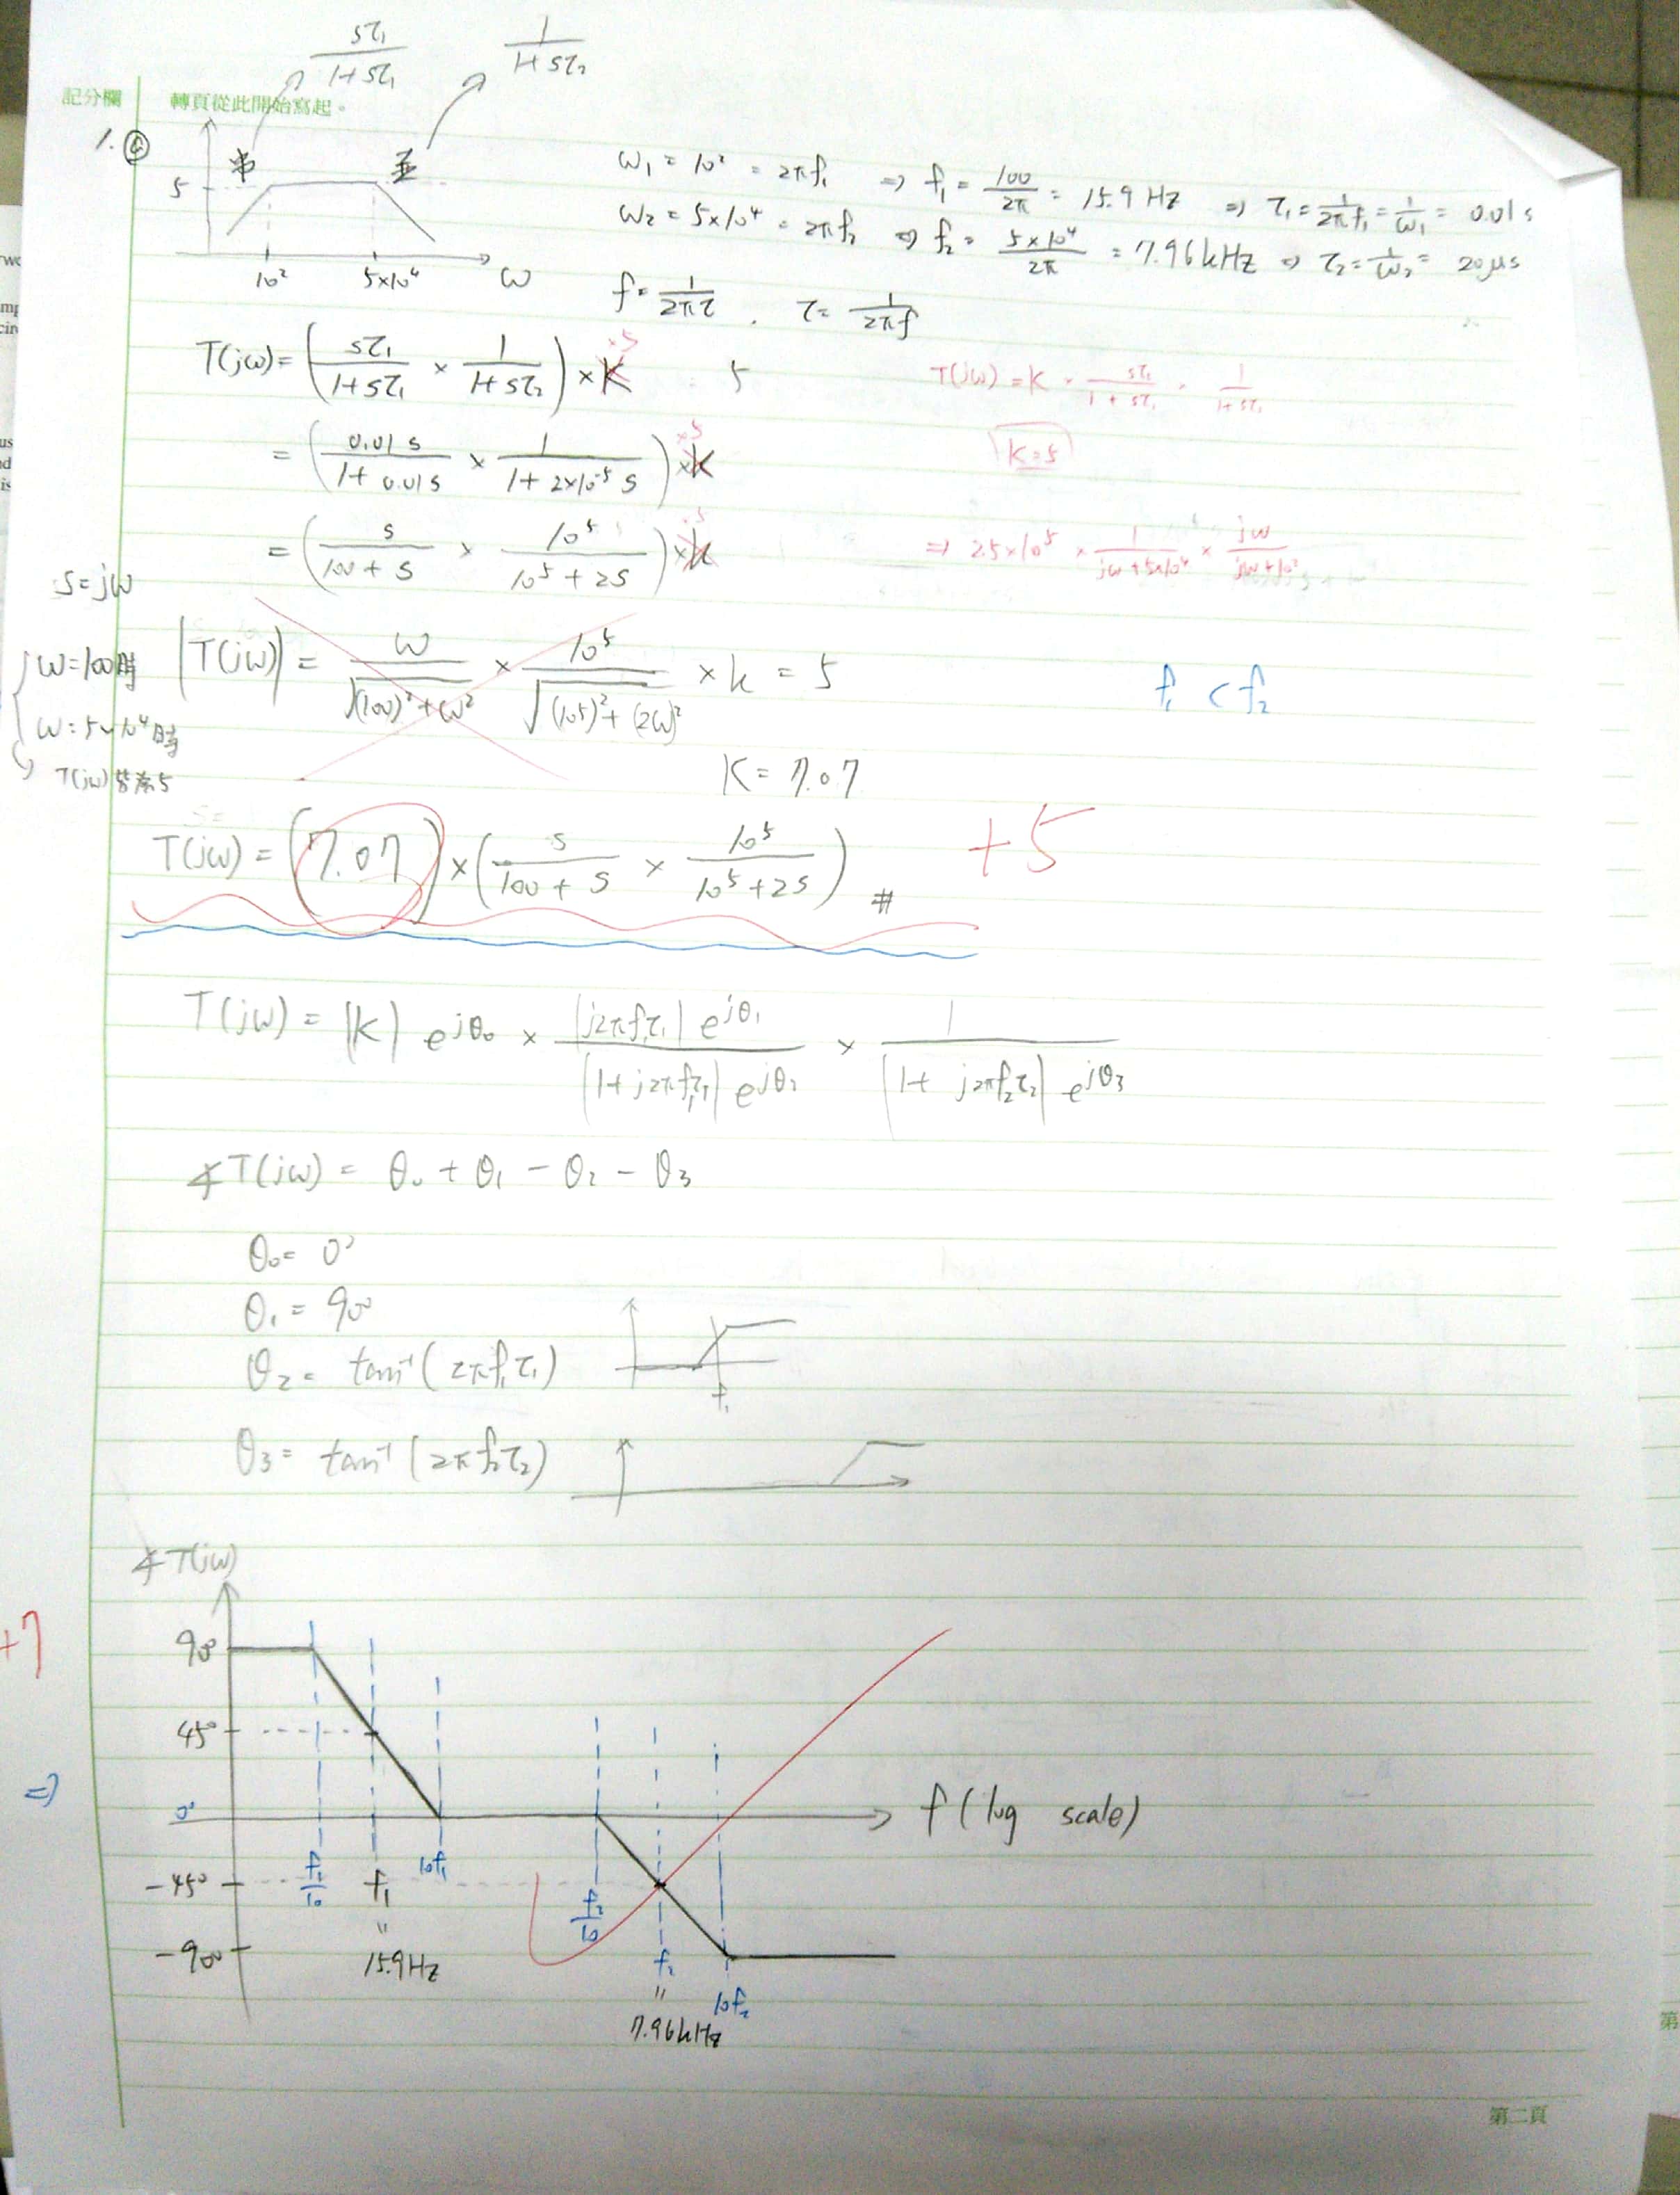 sτ₁/(1+sτ₁) 1/(1+sτ₂)
記分欄 轉頁從此開始寫起。
1. (a)
5
10² 5×10⁴ ω
ω₁ = 10² = 2πf₁ ⇒ f₁ = 100/2π = 15.9 Hz ⇒ τ₁ = 1/2πf₁ = 1/ω₁ = 0.01 s
ω₂ = 5×10⁴ = 2πf₂ ⇒ f₂ = 5×10⁴/2π = 7.96kHz ⇒ τ₂ = 1/ω₂ = 20μs
f = 1/2πτ , τ = 1/2πf
T(jω) = (sτ₁/(1+sτ₁) × 1/(1+sτ₂)) × K ×5 5
T(jω) = K × sτ₁/(1+sτ₁) × 1/(1+sτ₂)
= (0.01s/(1+0.01s) × 1/(1+2×10⁻⁵s)) × k ×5
K=5
= (s/(100+s) × 10⁵/(10⁵+2s)) × k ×5
⇒ 2.5×10⁵ × 1/(jω+5×10⁴) × jω/(jω+10²)
s=jω
ω=100時
ω=5×10⁴時
T(jω)皆為5
|T(jω)| = ω/√((100)²+ω²) × 10⁵/√((10⁵)²+(2ω)²) × k = 5
f₁ < f₂
K = 7.07
T(jω) = (7.07) × (s/(100+s) × 10⁵/(10⁵+2s)) #
+5
T(jω) = |K| e^jθ₀ × |j2πf₁τ₁| e^jθ₁/(|1+j2πf₁τ₁| e^jθ₂) × 1/(|1+j2πf₂τ₂| e^jθ₃)
∡T(jω) = θ₀ + θ₁ − θ₂ − θ₃
θ₀ = 0°
θ₁ = 90°
θ₂ = tan⁻¹(2πf₁τ₁)
f₁
θ₃ = tan⁻¹(2πf₂τ₂)
∡T(jω)
+7
90°
45°
⇒
0°
f (log scale)
−45°
f₁/10 f₁ 10f₁ f₂/10
−90°
" 15.9Hz
f₂ 10f₂
" 7.96kHz
第二頁
第